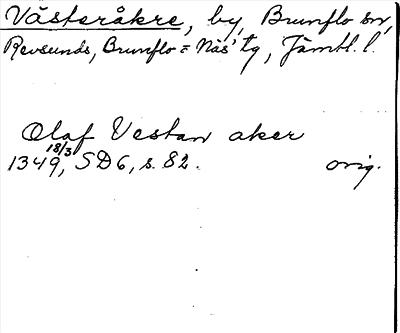 Västeråkre, by, Brunflo sn,
Revsunds, Brunflo = Näs' tg, Jämtl. l.
Olaf Vestan aker
1349, 18/3 SD6, s. 82. orig.